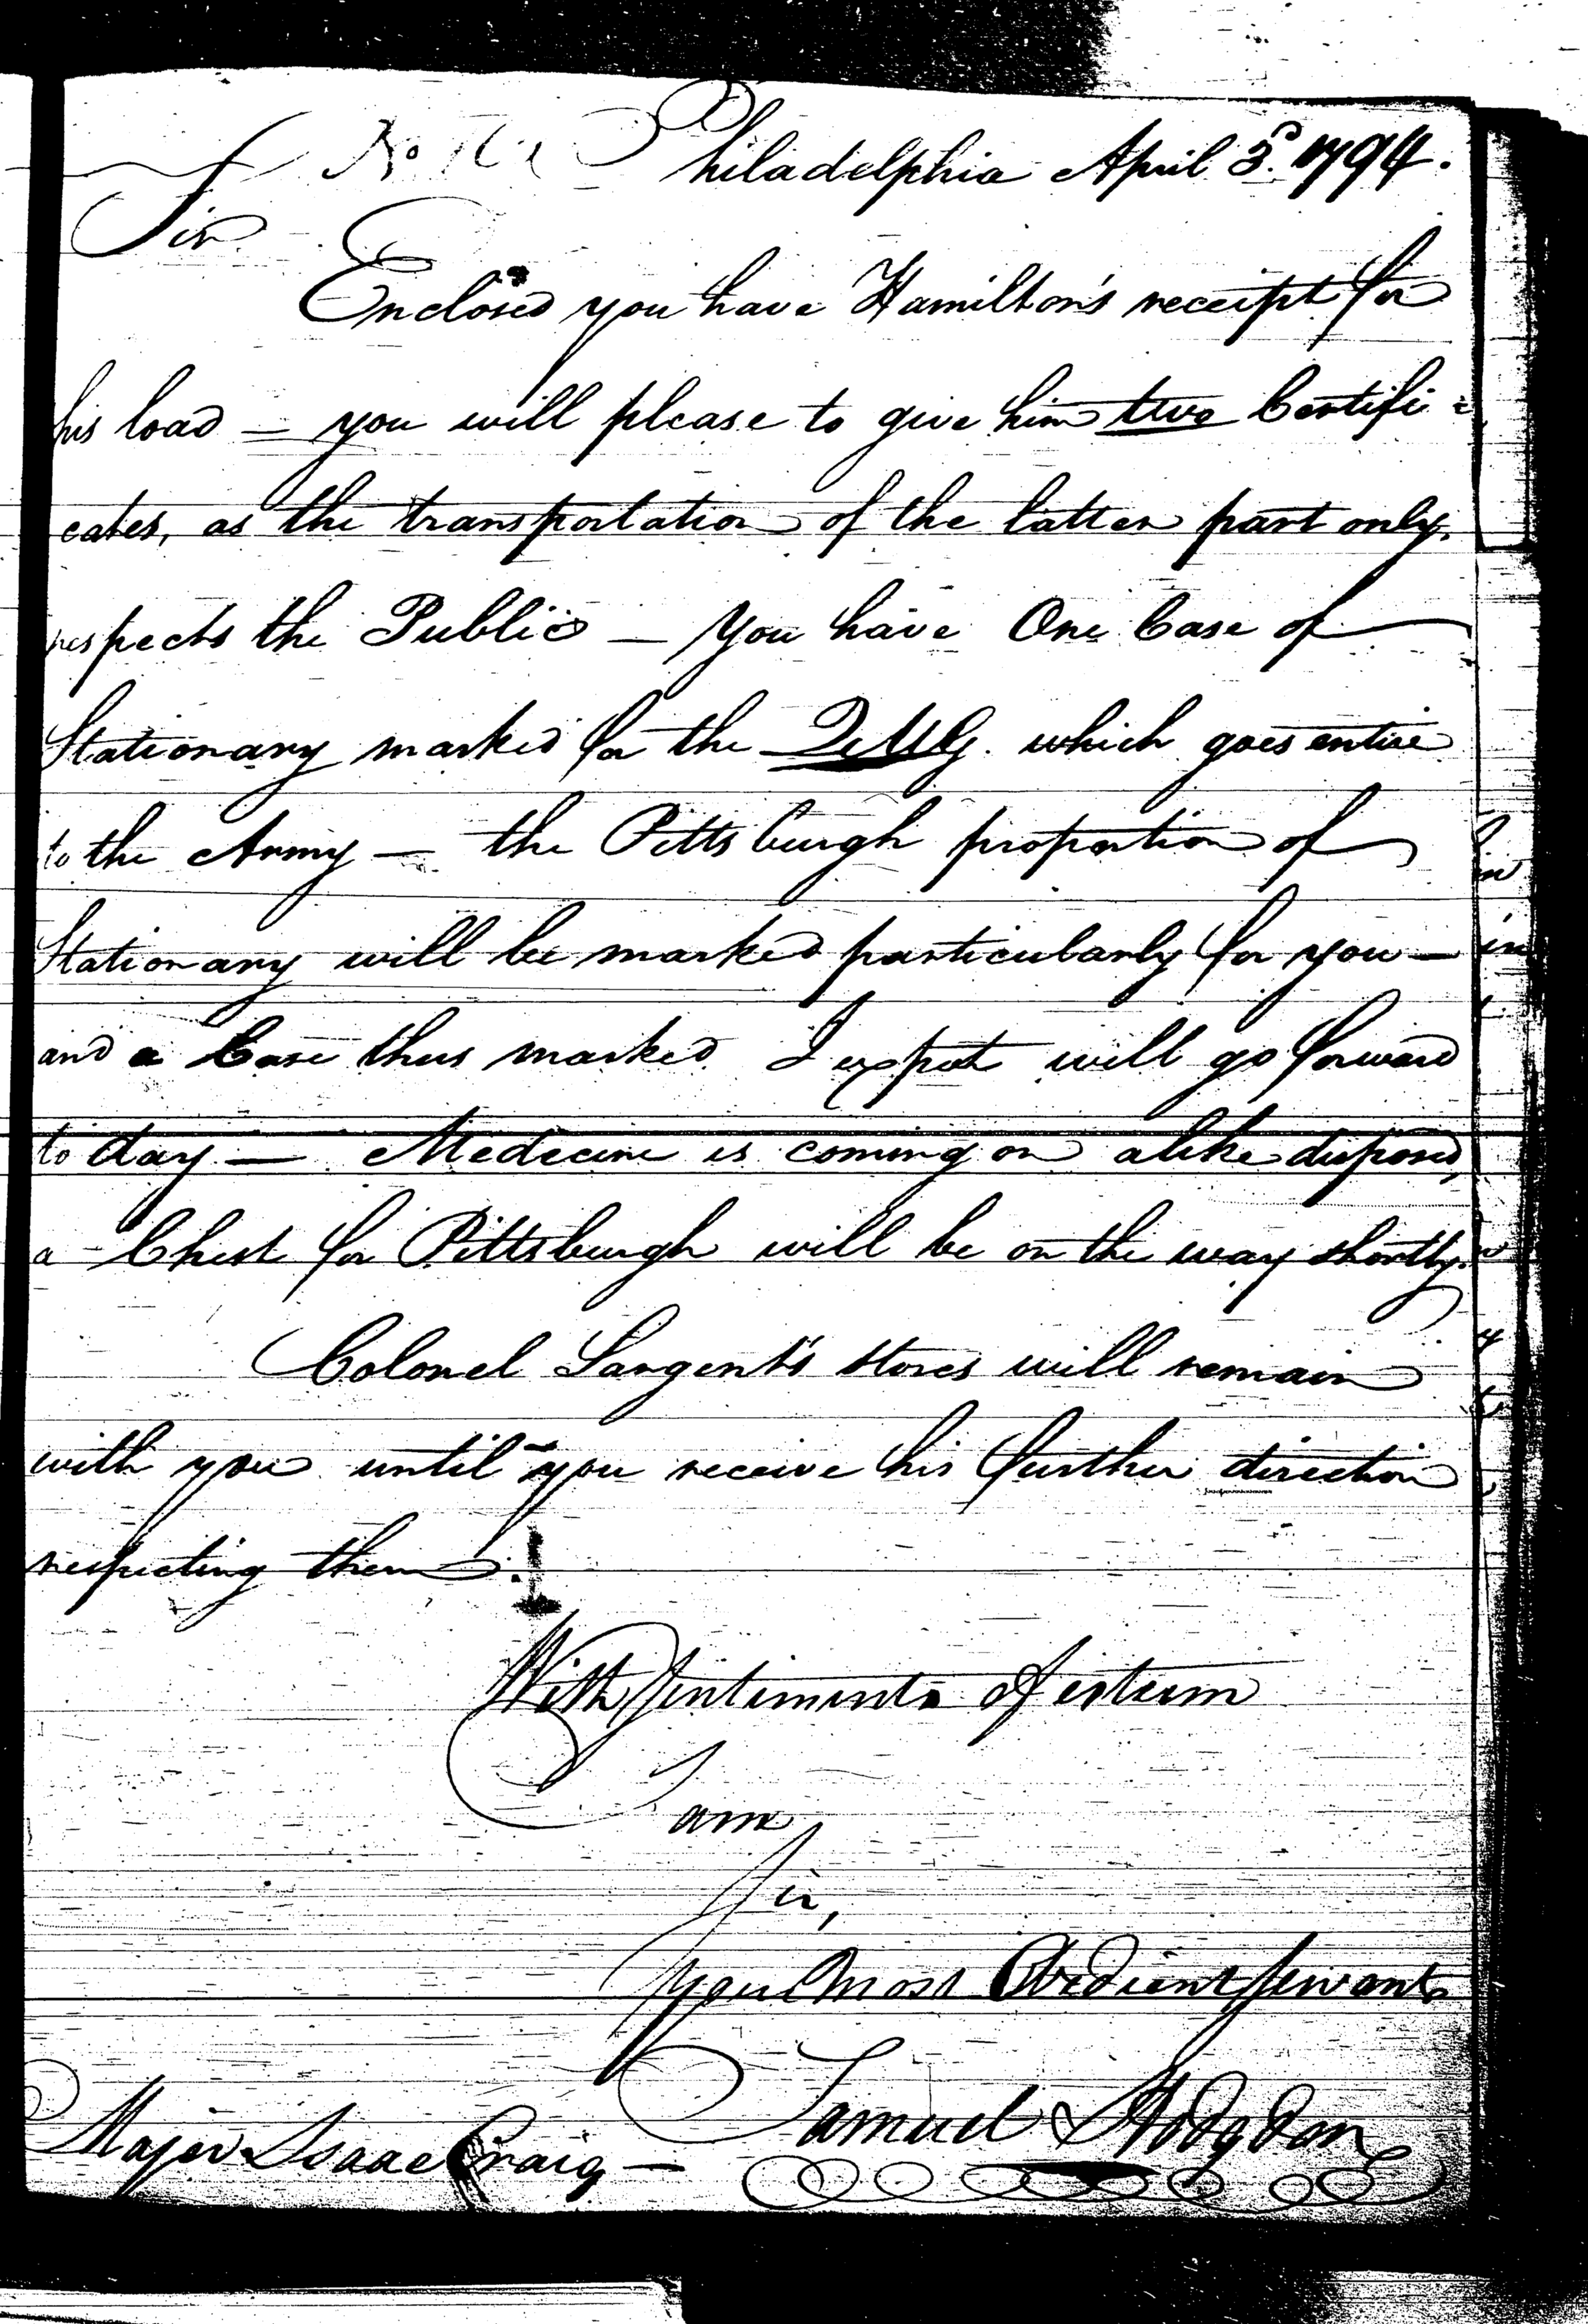 No
Philadelphia April 3d. 1794.
Sir
Enclosed you have Hamilton's receipt for
his load — you will please to give him two Certifi=
cates, as the transportation of the latter part only
respects the Public — You have One Case of
Stationary marked for the QrMG. which goes entire
to the Army — the Pittsburgh proportion of
Stationary will be marked particularly for you —
and a Case thus marked I expect will go forward
to day — Medecine is coming on alike disposed,
a Chest for Pittsburgh will be on the way shortly.
Colonel Sargent's stores will remain
with you until you receive his further direction
respecting them.
With sentiments of esteem
I am
Sir,
your most Obedient servant
Samuel Hodgdon
Major Isaac Craig —